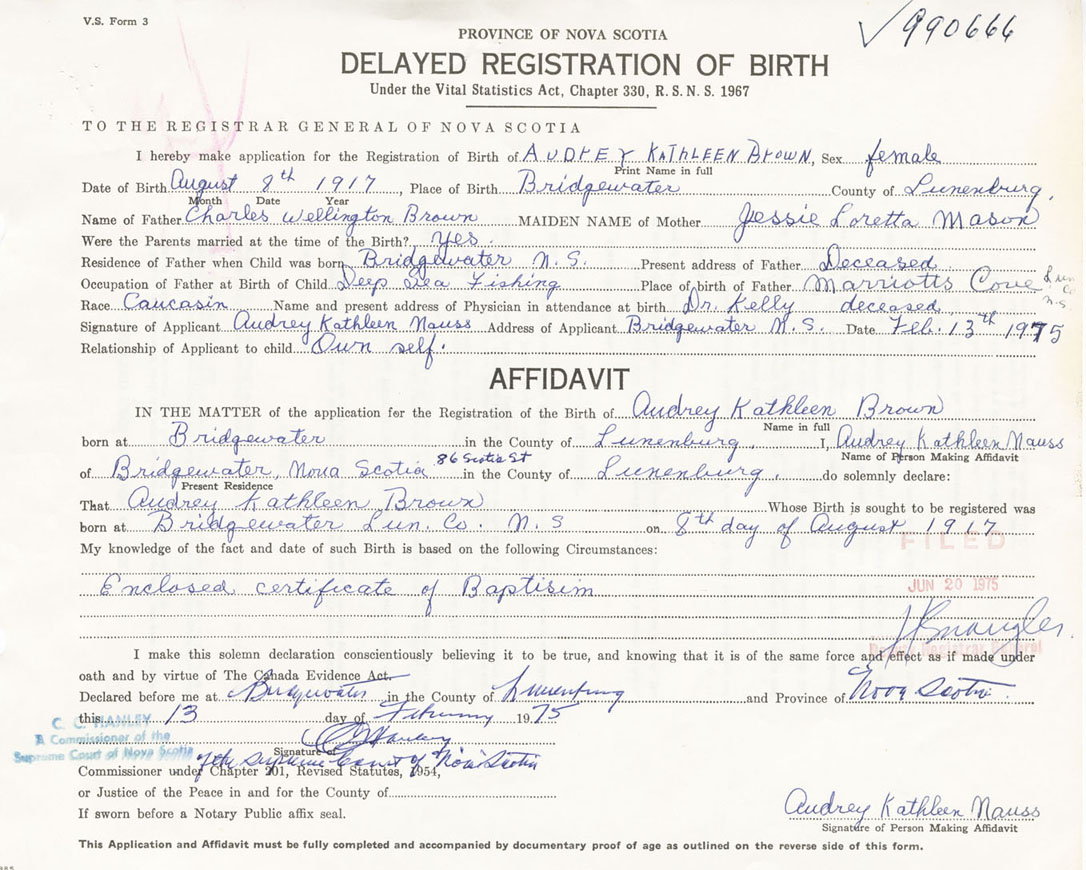 V.S. Form 3
✓990666
PROVINCE OF NOVA SCOTIA
DELAYED REGISTRATION OF BIRTH
Under the Vital Statistics Act, Chapter 330, R.S.N.S. 1967
TO THE REGISTRAR GENERAL OF NOVA SCOTIA
I hereby make application for the Registration of Birth of AUDREY KATHLEEN BROWN, Sex female
Print Name in full
Date of Birth August 8th 1917, Place of Birth Bridgewater County of Lunenburg,
Month Date Year
Name of Father Charles Wellington Brown MAIDEN NAME of Mother Jessie Loretta Mason
Were the Parents married at the time of the Birth? Yes.
Residence of Father when Child was born Bridgewater N.S. Present address of Father Deceased
Occupation of Father at Birth of Child Deep Sea Fishing Place of birth of Father Marriotts Cove Lun Co N.S
Race Caucasin Name and present address of Physician in attendance at birth Dr. Kelly deceased
Signature of Applicant Audrey Kathleen Nauss Address of Applicant Bridgewater N.S. Date Feb. 13th 1975
Relationship of Applicant to child Own self.
AFFIDAVIT
IN THE MATTER of the application for the Registration of the Birth of Audrey Kathleen Brown
Name in full
born at Bridgewater in the County of Lunenburg, I, Audrey Kathleen Nauss
Name of Person Making Affidavit
of Bridgewater, Nova Scotia 86 Scotia St in the County of Lunenburg, do solemnly declare:
Present Residence
That Audrey Kathleen Brown Whose Birth is sought to be registered was
born at Bridgewater Lun. Co. N.S on 8th day of August 1917
My knowledge of the fact and date of such Birth is based on the following Circumstances:
FILED
Enclosed certificate of Baptisim
JUN 20 1975
Deputy Registrar General
I make this solemn declaration conscientiously believing it to be true, and knowing that it is of the same force and effect as if made under
oath and by virtue of The Canada Evidence Act.
Declared before me at Bridgewater in the County of Lunenburg and Province of Nova Scotia.
this 13 day of February 1975
C. C. HANLEY
A Commissioner of the
Supreme Court of Nova Scotia
Signature of
of the Supreme Court of Nova Scotia
Commissioner under Chapter 201, Revised Statutes, 1954,
or Justice of the Peace in and for the County of
If sworn before a Notary Public affix seal.
Audrey Kathleen Nauss
Signature of Person Making Affidavit
This Application and Affidavit must be fully completed and accompanied by documentary proof of age as outlined on the reverse side of this form.